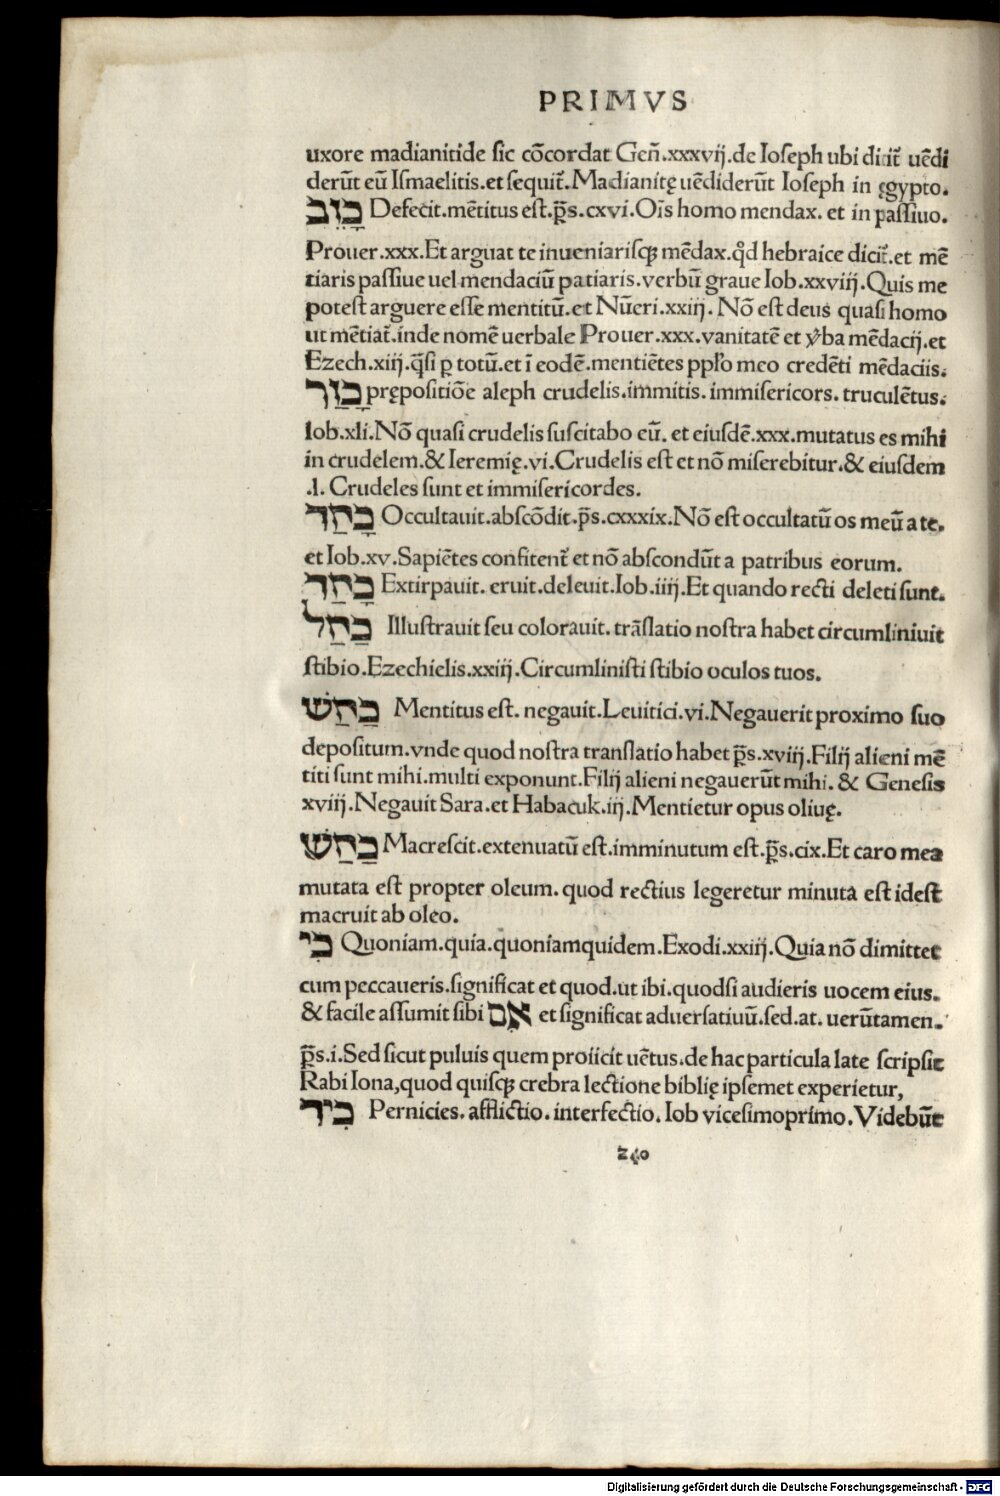 PRIMVS
uxore madianitide sic cōcordat Geñ.xxxvij.de Ioseph ubi dicit̃ uēdi
derūt eū Ismaelitis.et sequit̃.Madianitę uēdiderūt Ioseph in ęgypto.
כָזַב Defecit.mētitus est.p̄s.cxvi.Oīs homo mendax. et in passiuo.
Prouer.xxx.Et arguat te inueniarisqꝫ mēdax.qd̛ hebraice dicit̃.et mē
tiaris passiue uel mendaciū patiaris.verbū graue Iob.xxviij.Quis me
potest arguere esse mentitū.et Nūeri.xxiij. Nō est deus quasi homo
ut mētiat̃.inde nomē uerbale Prouer.xxx.vanitatē et v̛ba mēdacij.et
Ezech.xiij.q̄si ꝑ totū.et ī eodē.mentiētes ppl̛o meo credēti mēdaciis.
כָזַר prępositiōe aleph crudelis.immitis. immisericors. truculētus.
Iob.xli.Nō quasi crudelis suscitabo eū. et eiusdē.xxx.mutatus es mihi
in crudelem.& Ieremię.vi.Crudelis est et nō miserebitur.& eiusdem
.l. Crudeles sunt et immisericordes.
כָחַד Occultauit.abscōdit.p̄s.cxxxix.Nō est occultatū os meū a te.
et Iob.xv.Sapiētes confitent̃ et nō abscondūt a patribus eorum.
כָחַד Extirpauit. eruit.deleuit.Iob.iiij.Et quando recti deleti sunt.
כַחַל Illustrauit seu colorauit. trāslatio nostra habet circumliniuit
stibio.Ezechielis.xxiij.Circumlinisti stibio oculos tuos.
כַחַשׁ Mentitus est. negauit.Leuitici.vi.Negauerit proximo suo
depositum.vnde quod nostra translatio habet p̄s.xviij.Filij alieni mē
titi sunt mihi.multi exponunt.Filij alieni negauerūt mihi. & Genesis
xviij.Negauit Sara.et Habacuk.iij.Mentietur opus oliuę.
כַחַשׁ Macrescit.extenuatū est.imminutum est.p̄s.cix.Et caro mea
mutata est propter oleum.quod rectius legeretur minuta est idest
macruit ab oleo.
כִי Quoniam.quia.quoniamquidem.Exodi.xxiij.Quia nō dimittet
cum peccaueris.significat et quod.ut ibi.quodsi audieris uocem eius.
& facile assumit sibi אִם et significat aduersatiuū.sed.at. uerūtamen.
p̄s.i.Sed sicut puluis quem proiicit uētus.de hac particula late scripsit
Rabi Iona,quod quisqꝫ crebra lectione biblię ipsemet experietur,
כִיד Pernicies. afflictio. interfectio. Iob vicesimoprimo. Videbūt
240
Digitalisierung gefördert durch die Deutsche Forschungsgemeinschaft - DFG